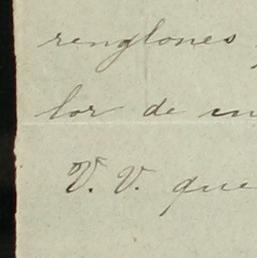 renglones
lor de
V. V. que